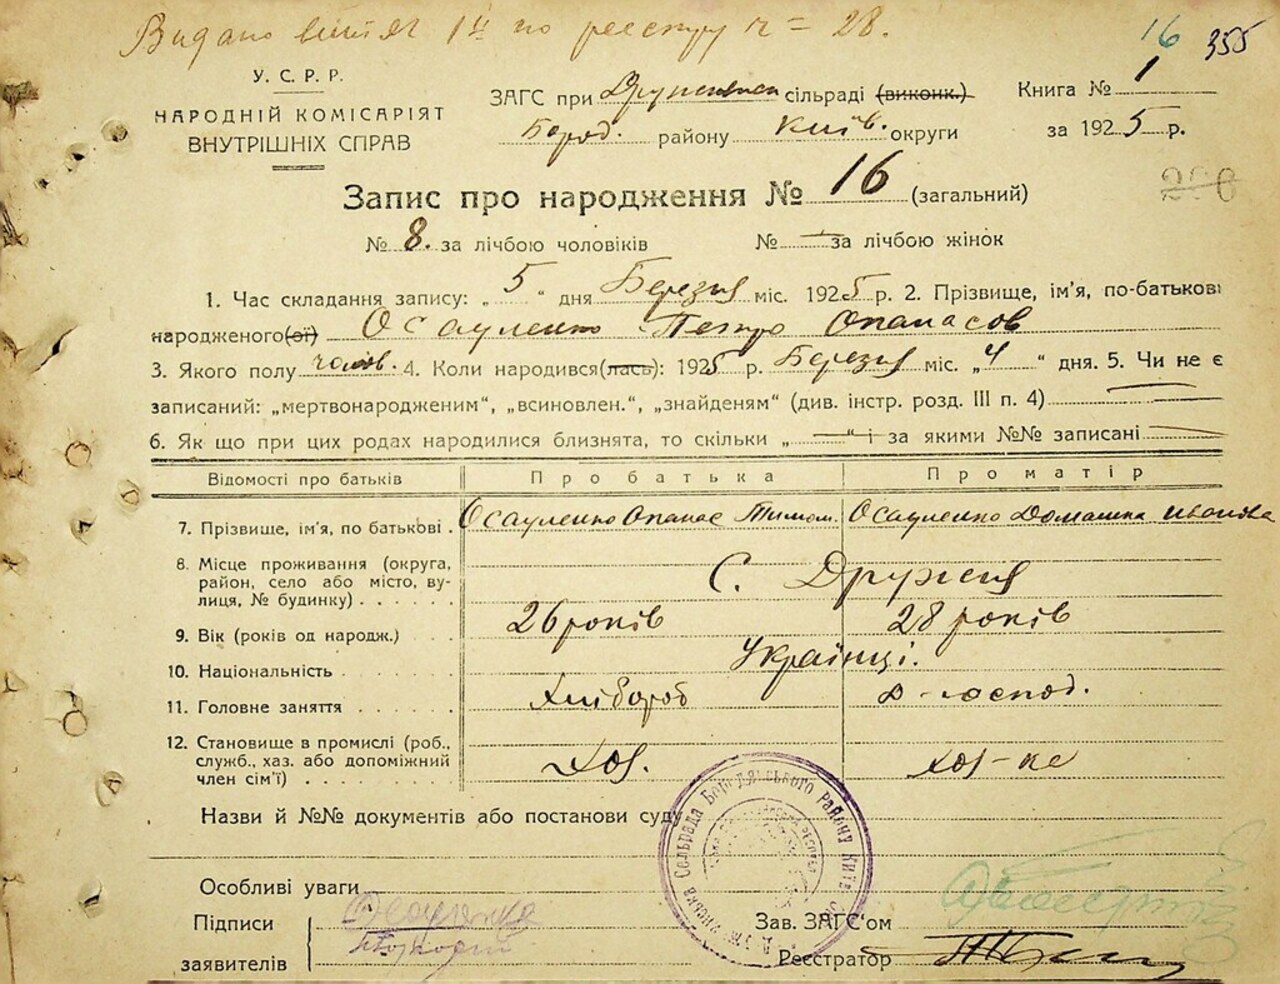 Видано витяг по реєстру ч = 28.
16 355
У. С. Р. Р.
НАРОДНІЙ КОМІСАРІЯТ
ВНУТРІШНІХ СПРАВ
ЗАГС при сільраді (виконк.)
Бород. району Київ. округи
Книга № 1
за 1925 р.
Запис про народження № 16 (загальний)
№ 8. за лічбою чоловіків № — за лічбою жінок
1. Час складання запису: „ 5 “ дня Березня міс. 1925 р. 2. Прізвище, ім'я, по-батькові
народженого(ої) Осауленко Петро Опанасов
3. Якого полу чолов. 4. Коли народився(лась): 1925 р. Березня міс. „ 4 “ дня. 5. Чи не є
записаний: „мертвонародженим“, „всиновлен.“, „знайденям“ (див. інстр. розд. III п. 4) —
6. Як що при цих родах народилися близнята, то скільки „ — “ і за якими №№ записані —
Відомості про батьків Про батька Про матір
7. Прізвище, ім'я, по батькові . Осауленко Опанас Тимош. Осауленко Домашка Иванова
8. Місце проживання (округа,
район, село або місто, ву-
лиця, № будинку) . . . . . . С. Дружня
9. Вік (років од народж.) . . . 26 років 28 років
10. Національність . . . . . . . Українці.
11. Головне заняття . . . . . . Хлібороб д-господ.
12. Становище в промислі (роб.,
служб., хаз. або допоміжний
член сім'ї) . . . . . . . . . Хоз. хоз-ка
Назви й №№ документів або постанови суду
Особливі уваги
Підписи
заявителів
Зав. ЗАГС'ом
Реєстратор
Сельрада Бородянського Района Київ